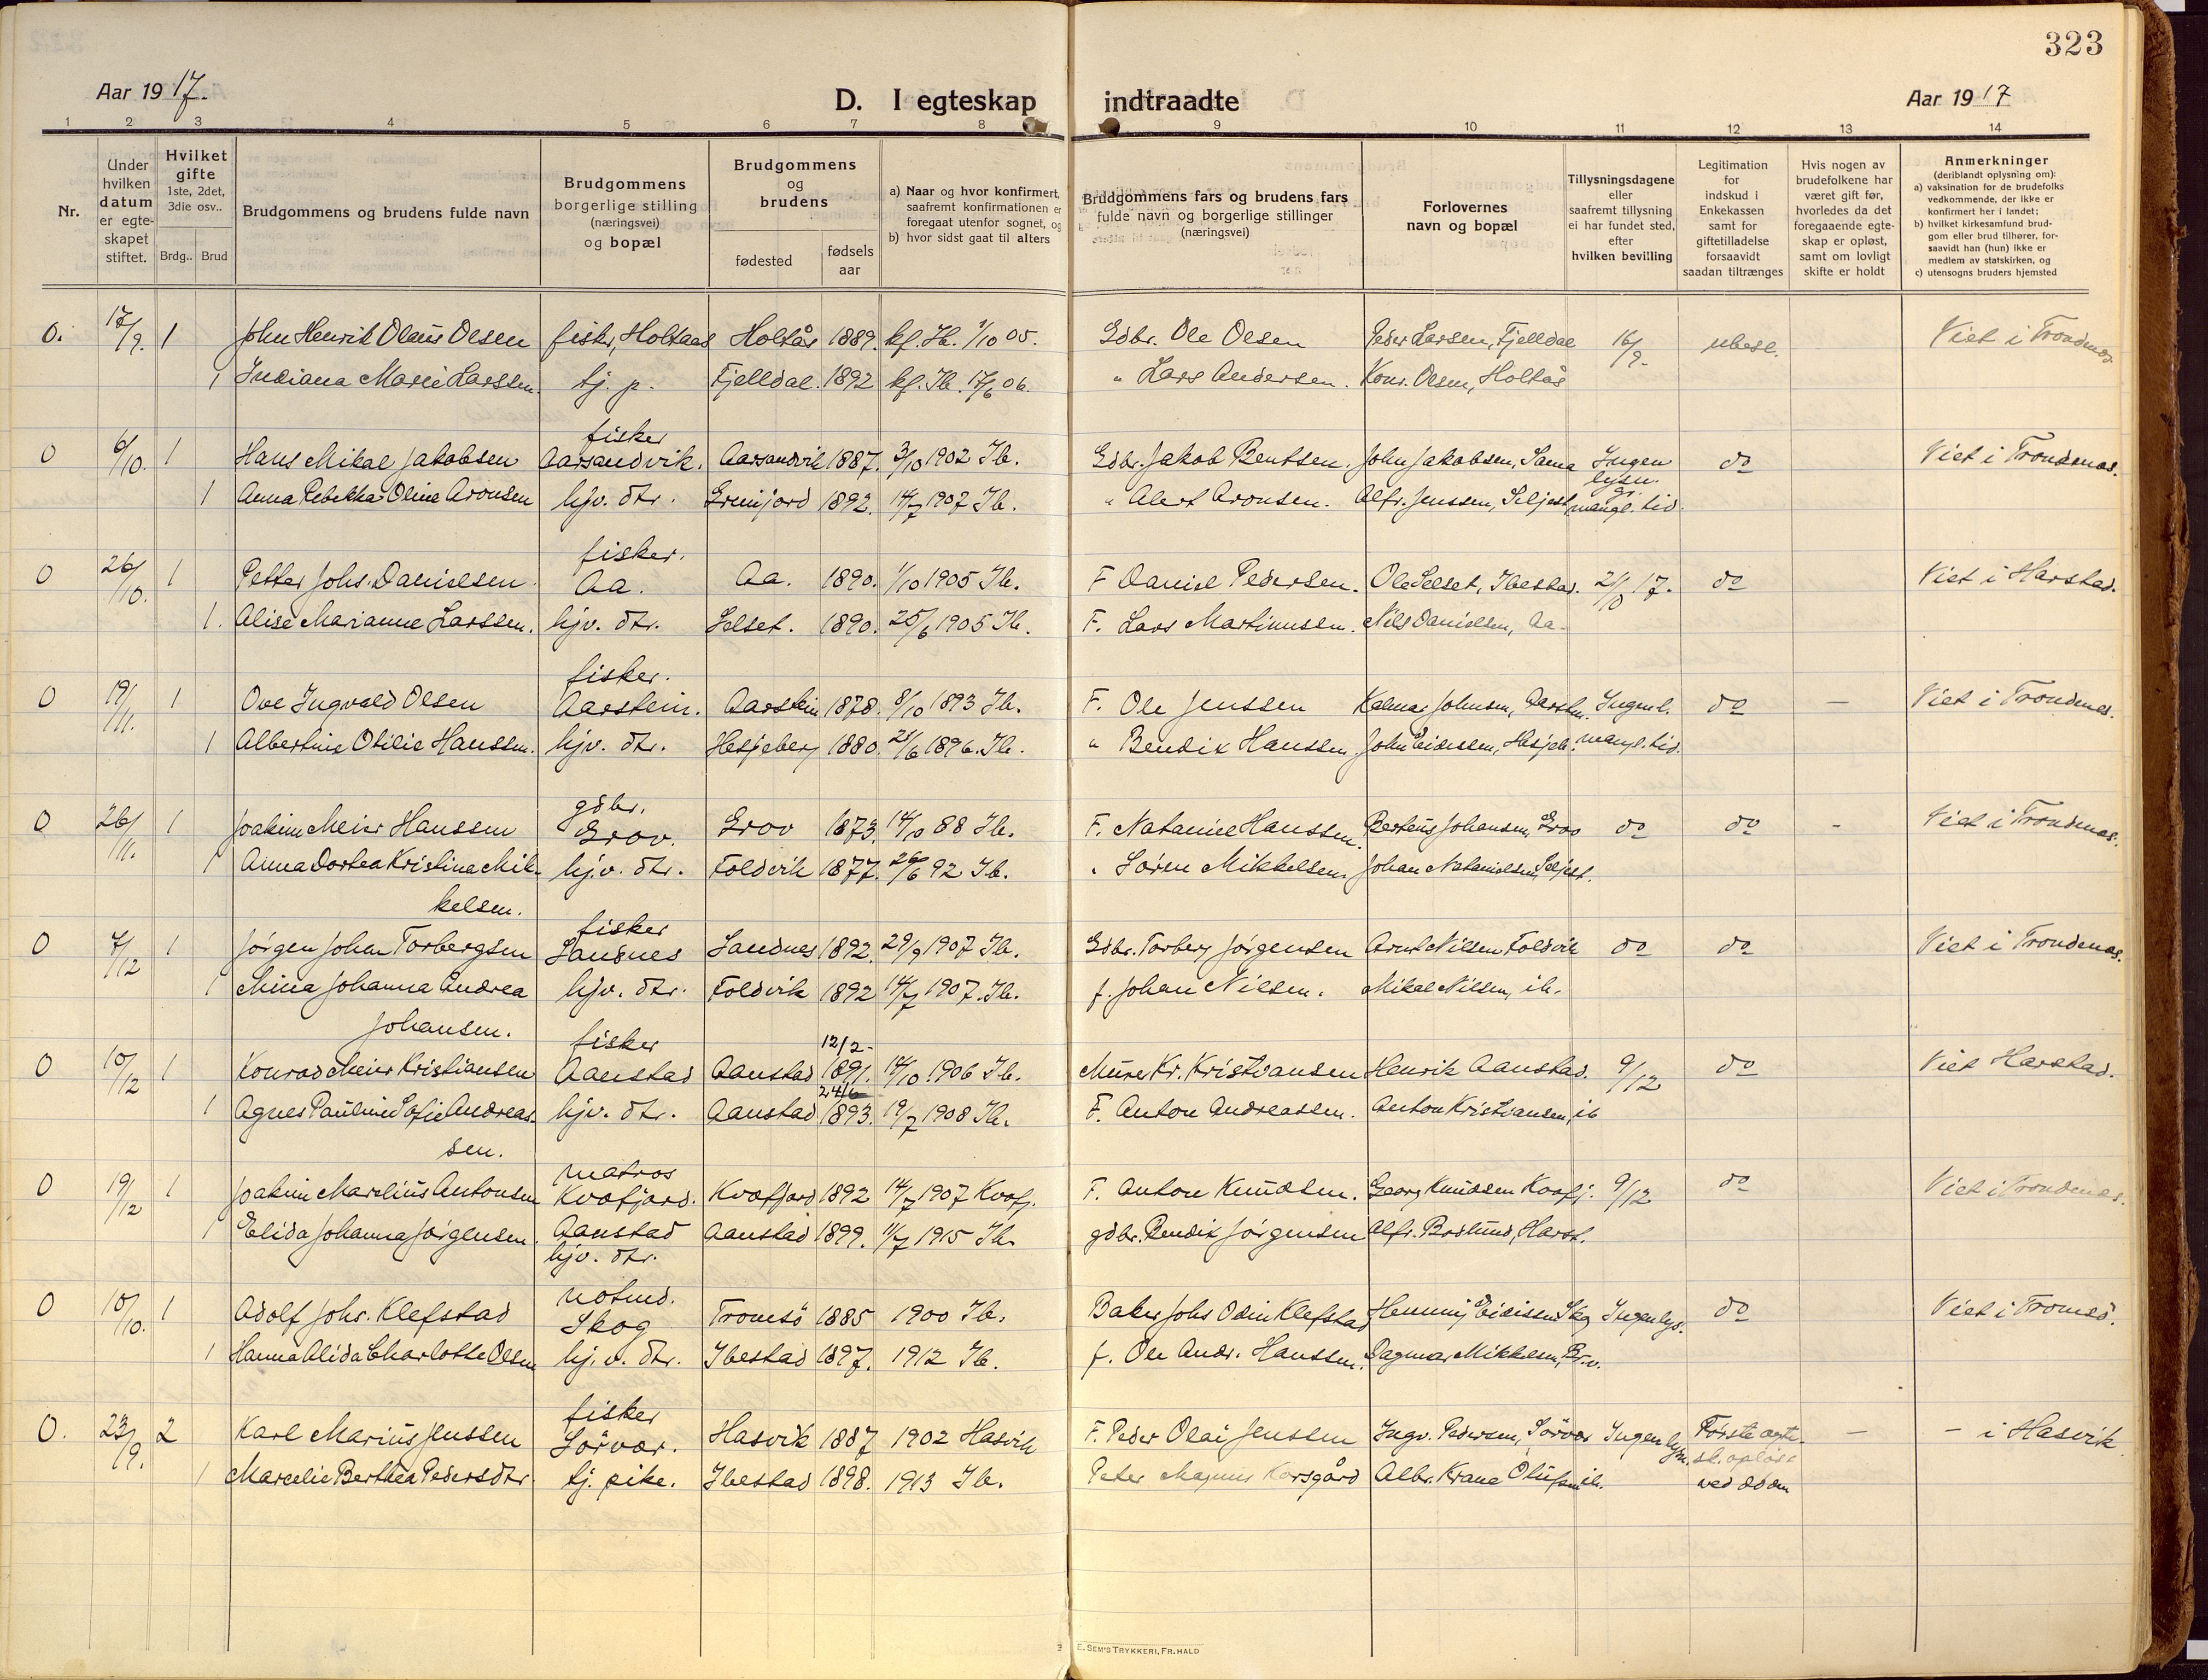 323
Aar 1917.
D. I egteskap indtraadte
Aar 1917
1 2 3 4 5 6 7 8 9 10 11 12 13 14
Nr.
Under hvilken datum er egteskapet stiftet.
Hvilket gifte 1ste, 2det, 3die osv..
Brdg.. Brud
Brudgommens og brudens fulde navn
Brudgommens borgerlige stilling (næringsvei) og bopæl
Brudgommens og brudens
fødested
fødsels aar
a) Naar og hvor konfirmert, saafremt konfirmationen er foregaat utenfor sognet, og
b) hvor sidst gaat til alters
Brudgommens fars og brudens fars fulde navn og borgerlige stillinger (næringsvei)
Forlovernes navn og bopæl
Tillysningsdagene eller saafremt tillysning ei har fundet sted, efter hvilken bevilling
Legitimation for indskud i Enkekassen samt for giftetilladelse forsaavidt saadan tiltrænges
Hvis nogen av brudefolkene har været gift før, hvorledes da det foregaaende egteskap er opløst, samt om lovligt skifte er holdt
Anmerkninger (deriblandt oplysning om):
a) vaksination for de brudefolks vedkommende, der ikke er konfirmert her i landet;
b) hvilket kirkesamfund brudgom eller brud tilhører, forsaavidt han (hun) ikke er medlem av statskirken, og
c) utensogns bruders hjemsted
0. 17/9. 1 John Henrik Olaus Olsen fisker, Holtaas Holtås 1889. kf. Ib. 1/10 05. Gdbr. Ole Olsen Peder Larsen, Fjelldal 16/9. ubesl. Viet i Trondenes
1 Indiana Marie Larssen. tj. p. Fjelldal. 1892 kf. Ib. 17/6 06. " Lars Andersen. Konr. Olsen, Holtås
fisker
0 6/10. 1 Hans Mikal Jakobsen Aarsandvik. Aarsandvik 1887. 3/10 1902 Ib. Gdbr. Jakob Bentsen. John Jakobsen, Ingen lysn. do Viet i Trondenes.
1 Anna Rebekka Oline Aronsen hjv. dtr. Grovfjord 1892. 14/7 1907 Ib. " Alert Aronsen. Alfr. Jenssen, Seljest. gr. mangl. tid.
fisker.
0 26/10. 1 Petter Johs. Danielsen Aa. Aa. 1890. 1/10 1905 Ib. F Daniel Pedersen. Ole Selset, Ibestad. 21/10 17. do Viet i Harstad.
1. Alise Marianne Larssen. hjv. dtr. Selset. 1890. 25/6 1905 Ib. F. Lars Martinussen. Nils Danielsen, Aa.
fisker.
0 19/11. 1 Ove Ingvald Olsen Aarstein. Aarstein 1878. 8/10 1893 Ib. F. Ole Jenssen Kalmar Johnsen, Aarstn. Ingen l. do — Viet i Trondenes.
1 Albertine Otilie Hanssen. hjv. dtr. Hesjeberg 1880. 21/6 1896. Ib. " Bendix Hanssen John Eidissen, Hesjeb. mangl. tid.
gdbr.
0 26/11. 1 Joakim Meier Hanssen Grov. Grov 1873. 14/10 88 Ib. F. Nataniel Hanssen. Berteus Johansen, Grov do do - Viet i Trondenes.
1 Anna Dortea Kristine Mik- hj.v. dtr. Foldvik 1877. 26/6 92 Ib. " Søren Mikkelsen. Johan Natanielsen, Seljest.
kelsen.
fisker
0 7/12 1 Jørgen Johan Torbergsen Sandnes Sandnes 1892. 29/9 1907 Ib. Gdbr. Torberg Jørgensen Arnt Nilsen Foldvik do do Viet i Trondenes.
1 Mina Johanna Andrea hjv. dtr. Foldvik 1892 14/7 1907. Ib. f. Johan Nilsen. Mikal Nilsen, ib.
Johansen.
fisker 12/2-
0 10/12 1 Konrad Meier Kristiansen Aanstad Aanstad 1891. 14/10 1906 Ib. Murer Kr. Kristiansen Henrik Aanstad. 9/12 do Viet Harstad.
24/6
1 Agnes Pauline Sofie Andreas- hjv. dtr. Aanstad 1893. 19/7 1908 Ib. F. Anton Andreassen. Anton Kristiansen, ib
sen.
matros
0 19/12 1 Joakim Marelius Antonsen Kvæfjord. Kvæfjord 1892 14/7 1907 Kvæfj. F. Anton Knudsen. Georg Knudsen Kvæfj. 9/12 do Viet i Trondenes.
1 Elida Johanna Jørgensen. Aanstad Aanstad 1899. 11/7 1915 Ib. gdbr. Bendik Jørgensen Alfr. Boslund, Harst.
hjv. dtr.
notmd.
0 10/10. 1 Adolf Johs. Klefstad Skog Tromsö 1885 1900 Ib. Baker Johs Odin Klefstad Henning Eidissen Skg Ingen lys. do Viet i Tromsö.
1 Hanna Alida Charlotte Olsen hj.v. dtr. Ibestad 1897. 1912 Ib. f. Ole Andr. Hanssen. Dagmar Mikkelsen, Br.v.
fisker
0. 23/9. 2 Karl Marius Jenssen Sörvær. Hasvik 1887 1902 Hasvik F. Peder Olai Jenssen Ingv. Pedersen, Sörvær Ingen lysn. Første egte- — - i Hasvik
sk. opløst
1 Marcelie Berthea Pedersdtr tj. pike. Ibestad 1898. 1913 Ib. Peter Magnus Karsgård Albr. Krane Olufsen ib. ved døden
E. SEM'S TRYKKERI, FR. HALD